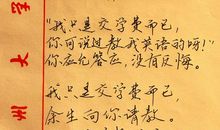 "我只是交学费而已,
你可说过教我英语的呀!"
你应允答应,没有反悔。
我只是交学费而已,
余生向你请教。
州大学